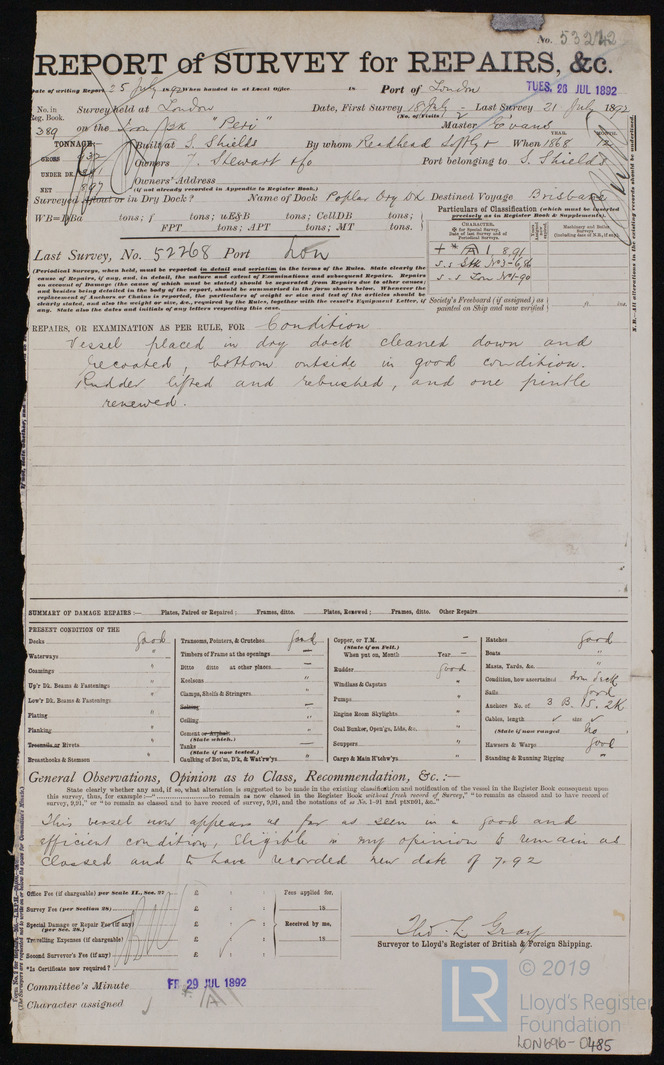 No. 53242
REPORT of SURVEY for REPAIRS, &c.
Date of writing Report 25 July 1892 When handed in at Local Office 18 Port of London TUES. 26 JUL 1892
No. in Reg. Book. Survey held at London Date, First Survey 18 July - Last Survey 21 July 1892
(No. of Visits)
389 on the Iron Bk "Peri" Master Evans
TONNAGE Built at S. Shields By whom Readhead Softly & When 1868 12
YEAR. MONTH.
GROSS 932 Owners T. Stewart & Co Port belonging to S. Shields
UNDER DK. 891 Owners' Address
NET 897 (if not already recorded in Appendix to Register Book.)
Surveyed Afloat or in Dry Dock? Name of Dock Poplar Dry Dk Destined Voyage Brisbane
WB=DBa tons; f tons; uE&B tons; CellDB tons;
FPT tons; APT tons; MT tons.
Particulars of Classification (which must be inserted precisely as in Register Book & Supplements).
CHARACTER.
for Special Survey, Date of Last Survey and of Periodical Surveys.
Machinery and Boiler Surveys (including date of N.B., if any).
Last Survey, No. 52268 Port Lon
+ A 1 8.91
(Periodical Surveys, when held, must be reported in detail and seriatim in the terms of the Rules. State clearly the cause of Repairs, if any, and, in detail, the nature and extent of Examinations and subsequent Repairs. Repairs on account of Damage (the cause of which must be stated) should be separated from Repairs due to other causes; and besides being detailed in the body of the report, should be summarised in the form shown below. Whenever the replacement of Anchors or Chains is reported, the particulars of weight or size and test of the articles should be clearly stated, and also the weight or size, &c., required by the Rules, together with the vessel's Equipment Letter, if any. State also the dates and initials of any letters respecting this case.
Society's Freeboard (if assigned) as painted on Ship and now verified ft. ins.
N.B.—All alterations in the existing records should be underlined.
REPAIRS, OR EXAMINATION AS PER RULE, FOR Condition
Vessel placed in dry dock cleaned down and
recoated, bottom outside in good condition.
Rudder lifted and rebushed, and one pintle
renewed.
SUMMARY OF DAMAGE REPAIRS:— Plates, Faired or Repaired; Frames, ditto. Plates, Renewed; Frames, ditto. Other Repairs
PRESENT CONDITION OF THE
Decks good
Waterways "
Coamings "
Up'r Dk. Beams & Fastenings "
Low'r Dk. Beams & Fastenings "
Plating "
Planking "
Treenails or Rivets "
Breasthooks & Stemson "
Transoms, Pointers, & Crutches good
Timbers of Frame at the openings —
Ditto ditto at other places —
Keelsons "
Clamps, Shelfs & Stringers "
Salting —
Ceiling "
Cement or Asphalt "
(State which.)
Tanks —
(State if now tested.)
Caulking of Bot'm, D'k, & Wat'rw'ys "
Copper, or Y.M. —
(State if on Felt.)
When put on, Month Year —
Rudder good
Windlass & Capstan "
Pumps "
Engine Room Skylights "
Coal Bunker, Open'gs, Lids, &c. "
Scuppers "
Cargo & Main H'tchw'ys "
Hatches good
Boats "
Masts, Yards, &c. "
Condition, how ascertained from Deck
Sails good
Anchors No. of 3 B. 1 S. 2K
Cables, length ✓ size ✓
(State if now ranged) No
Hawsers & Warps good
Standing & Running Rigging "
General Observations, Opinion as to Class, Recommendation, &c.:—
State clearly whether any, and if so, what alteration is suggested to be made in the existing classification and notification of the vessel in the Register Book consequent upon
this survey, thus, for example:—"..........to remain as now classed in the Register Book without fresh record of Survey," "to remain as classed and to have record of
survey, 9,91," or "to remain as classed and to have record of survey, 9,91, and the notations of ss No. 1-91 and ptND91, &c."
This vessel now appears as far as seen in a good and
efficient condition, Eligible in my opinion to remain as
classed and to have recorded new date of 7.92
Office Fee (if chargeable) per Scale II., Sec. 27 £ : : Fees applied for,
Survey Fee (per Section 28) £ : : 18
Special Damage or Repair Fee (if any) (per Sec. 28.) £ : : Received by me,
Travelling Expenses (if chargeable) £ : : 18
Second Surveyor's Fee (if any) £ : :
*Is Certificate now required?
Thos. L. Gray
Surveyor to Lloyd's Register of British & Foreign Shipping.
Committee's Minute FR 29 JUL 1892
Character assigned
LR © 2019
Lloyd's Register
Foundation
LON696-0485